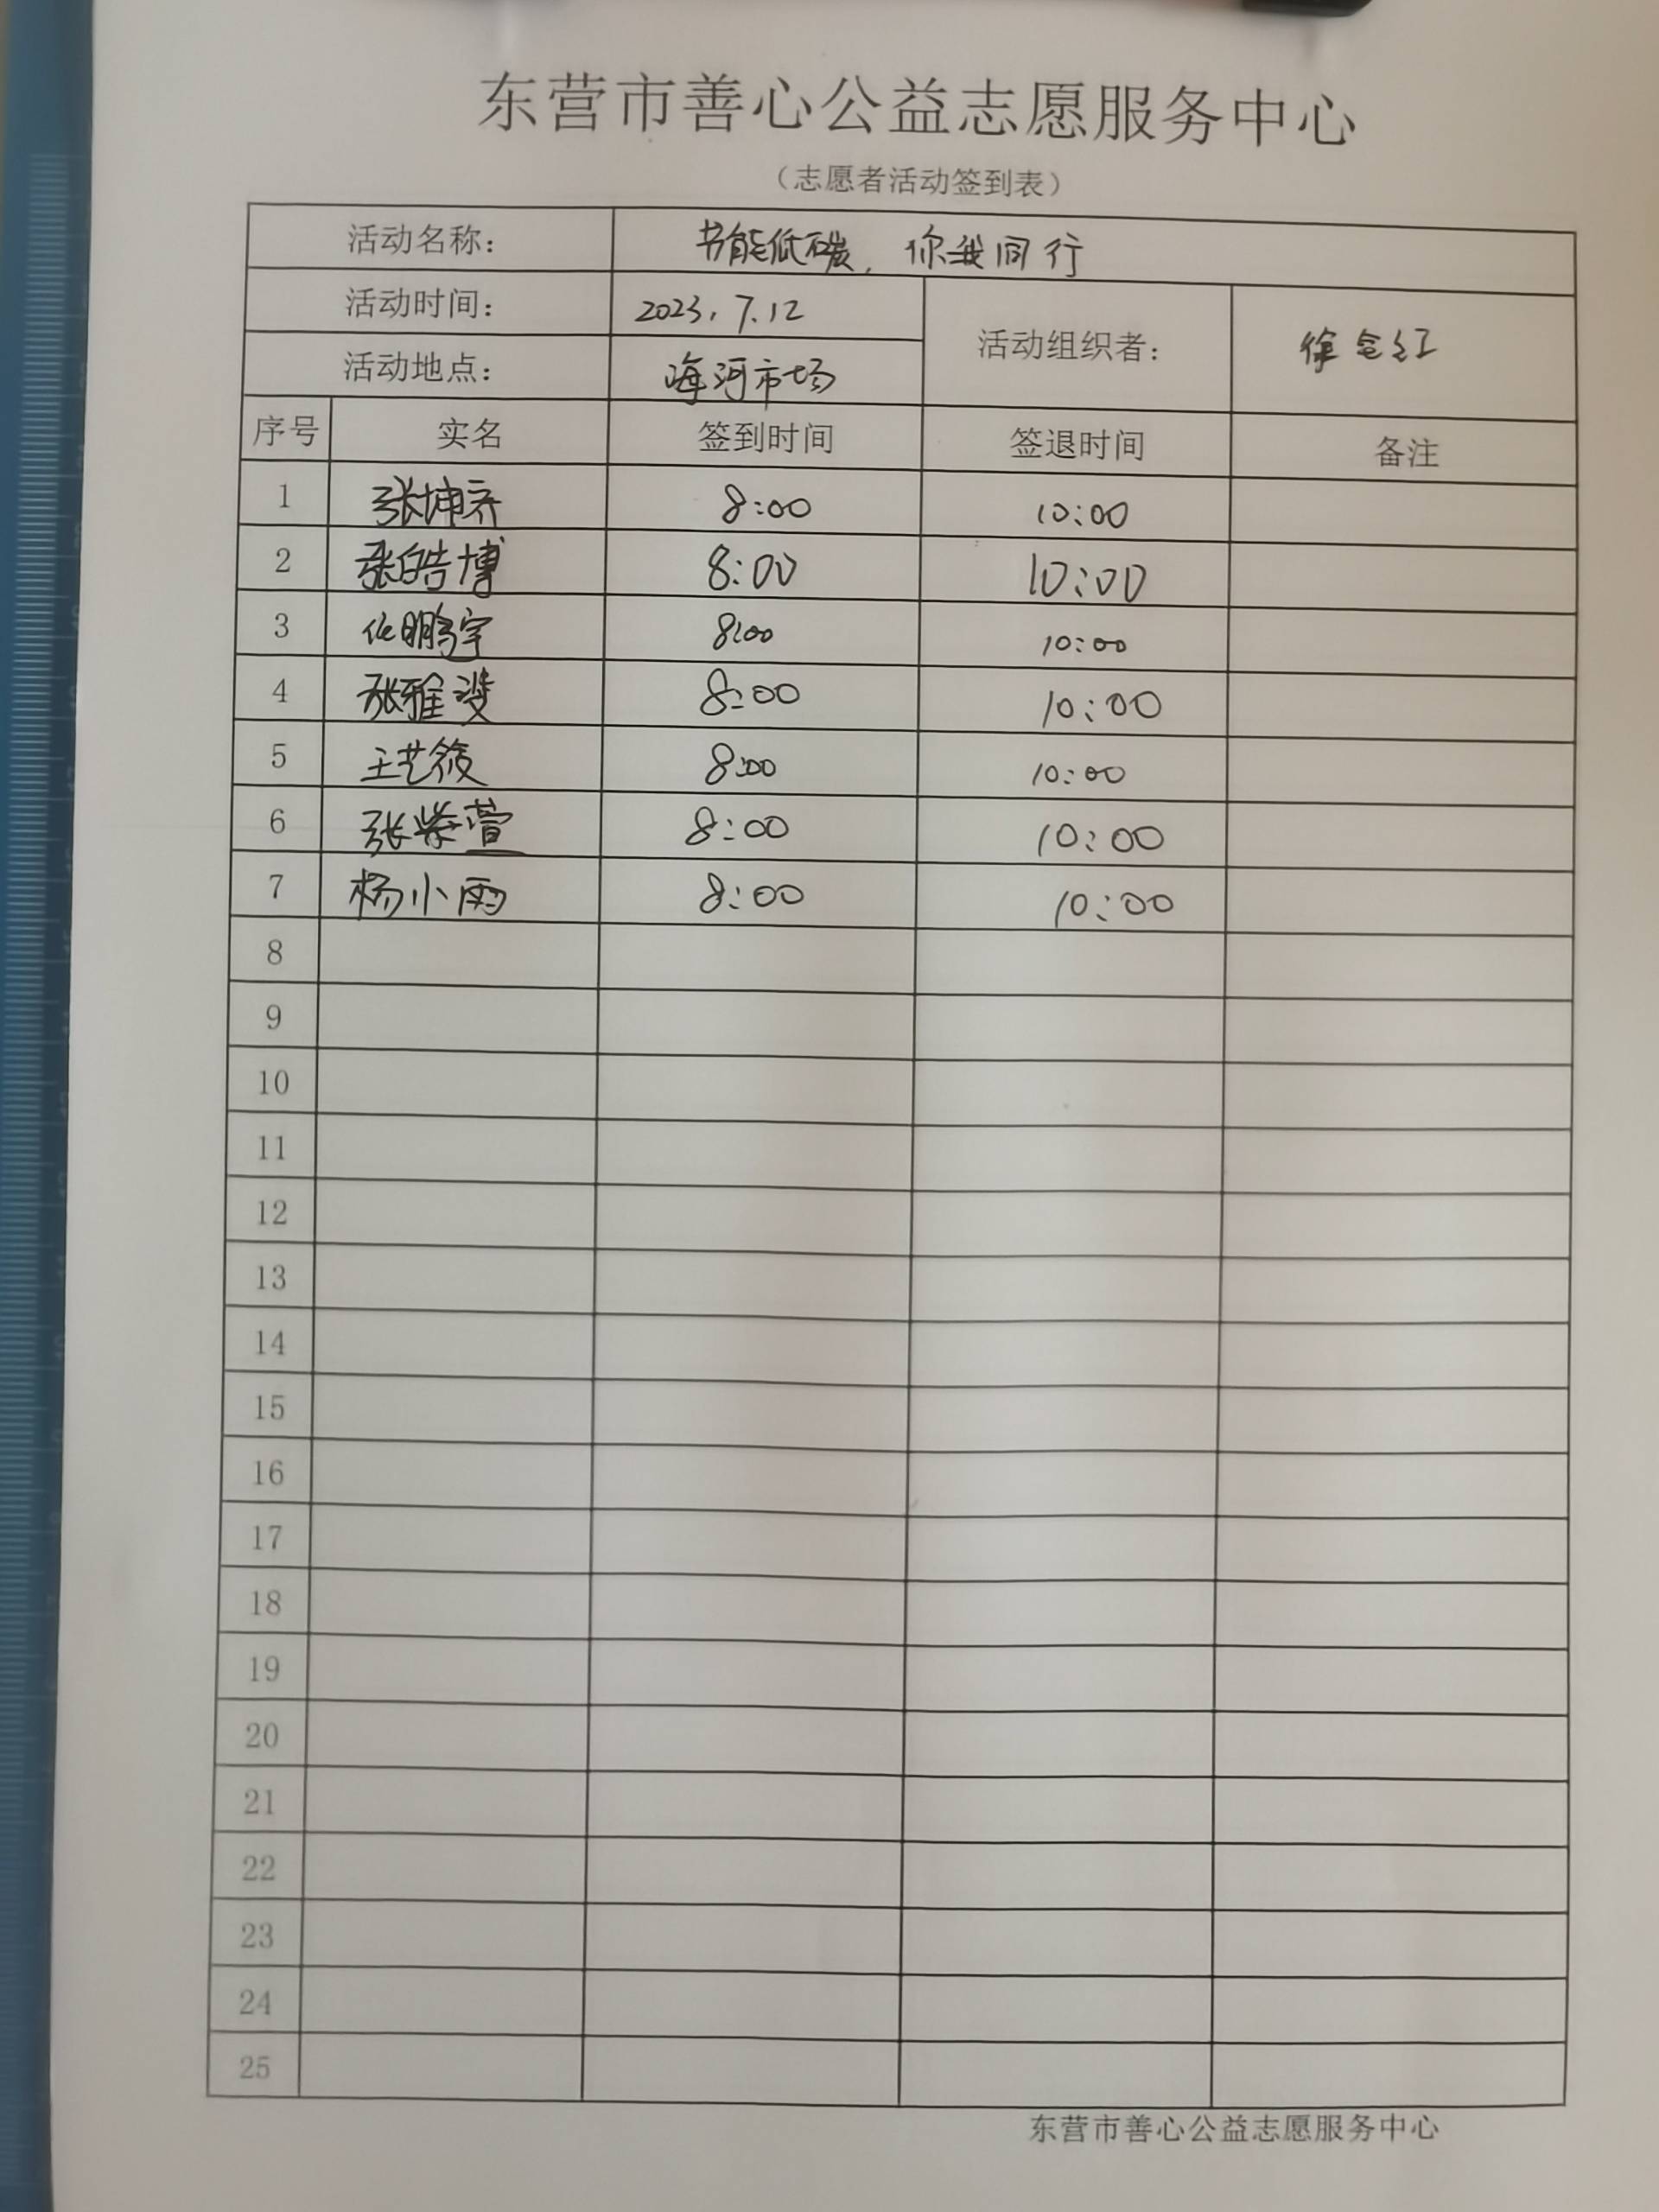 东营市善心公益志愿服务中心
（志愿者活动签到表）
活动名称： 节能低碳，你我同行
活动时间： 2023.7.12
活动组织者： 徐
活动地点： 海河市场
序号 实名 签到时间 签退时间 备注
1 张坤 8:00 10:00
2 张皓博 8:00 10:00
3 鹏宇 8:00 10:00
4 张雅雯 8:00 10:00
5 王艺筱 8:00 10:00
6 张紫萱 8:00 10:00
7 杨小雨 8:00 10:00
8
9
10
11
12
13
14
15
16
17
18
19
20
21
22
23
24
25
东营市善心公益志愿服务中心